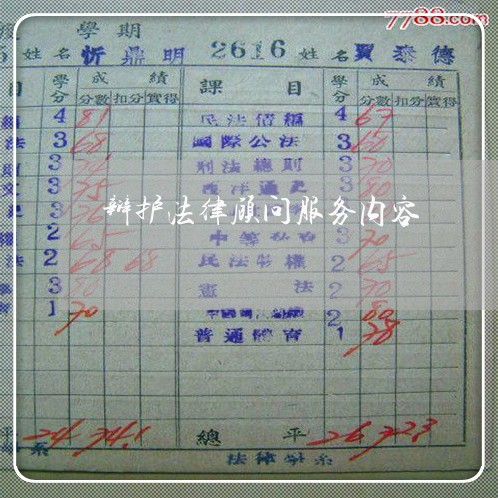 7788.com
學期
姓名 忻鼎明 2616 姓名 賈泰德
目 學分 成績 課目 學分 成績
分數 扣分 實得 分數 扣分 實得
4 81 民法債編 4 67
法 3 68 國際公法 3 60
3 刑法總則 3 70
3 75 西洋通史 3 80
辩护法律顾问服务内容
權 2 65 3 70
法 2 68 68 民法物權 2 65
3 80 憲法 2 70
1 70 2 80
普通體育 1 78
平 24 74.1 總平 26 72.3
系 法律學系